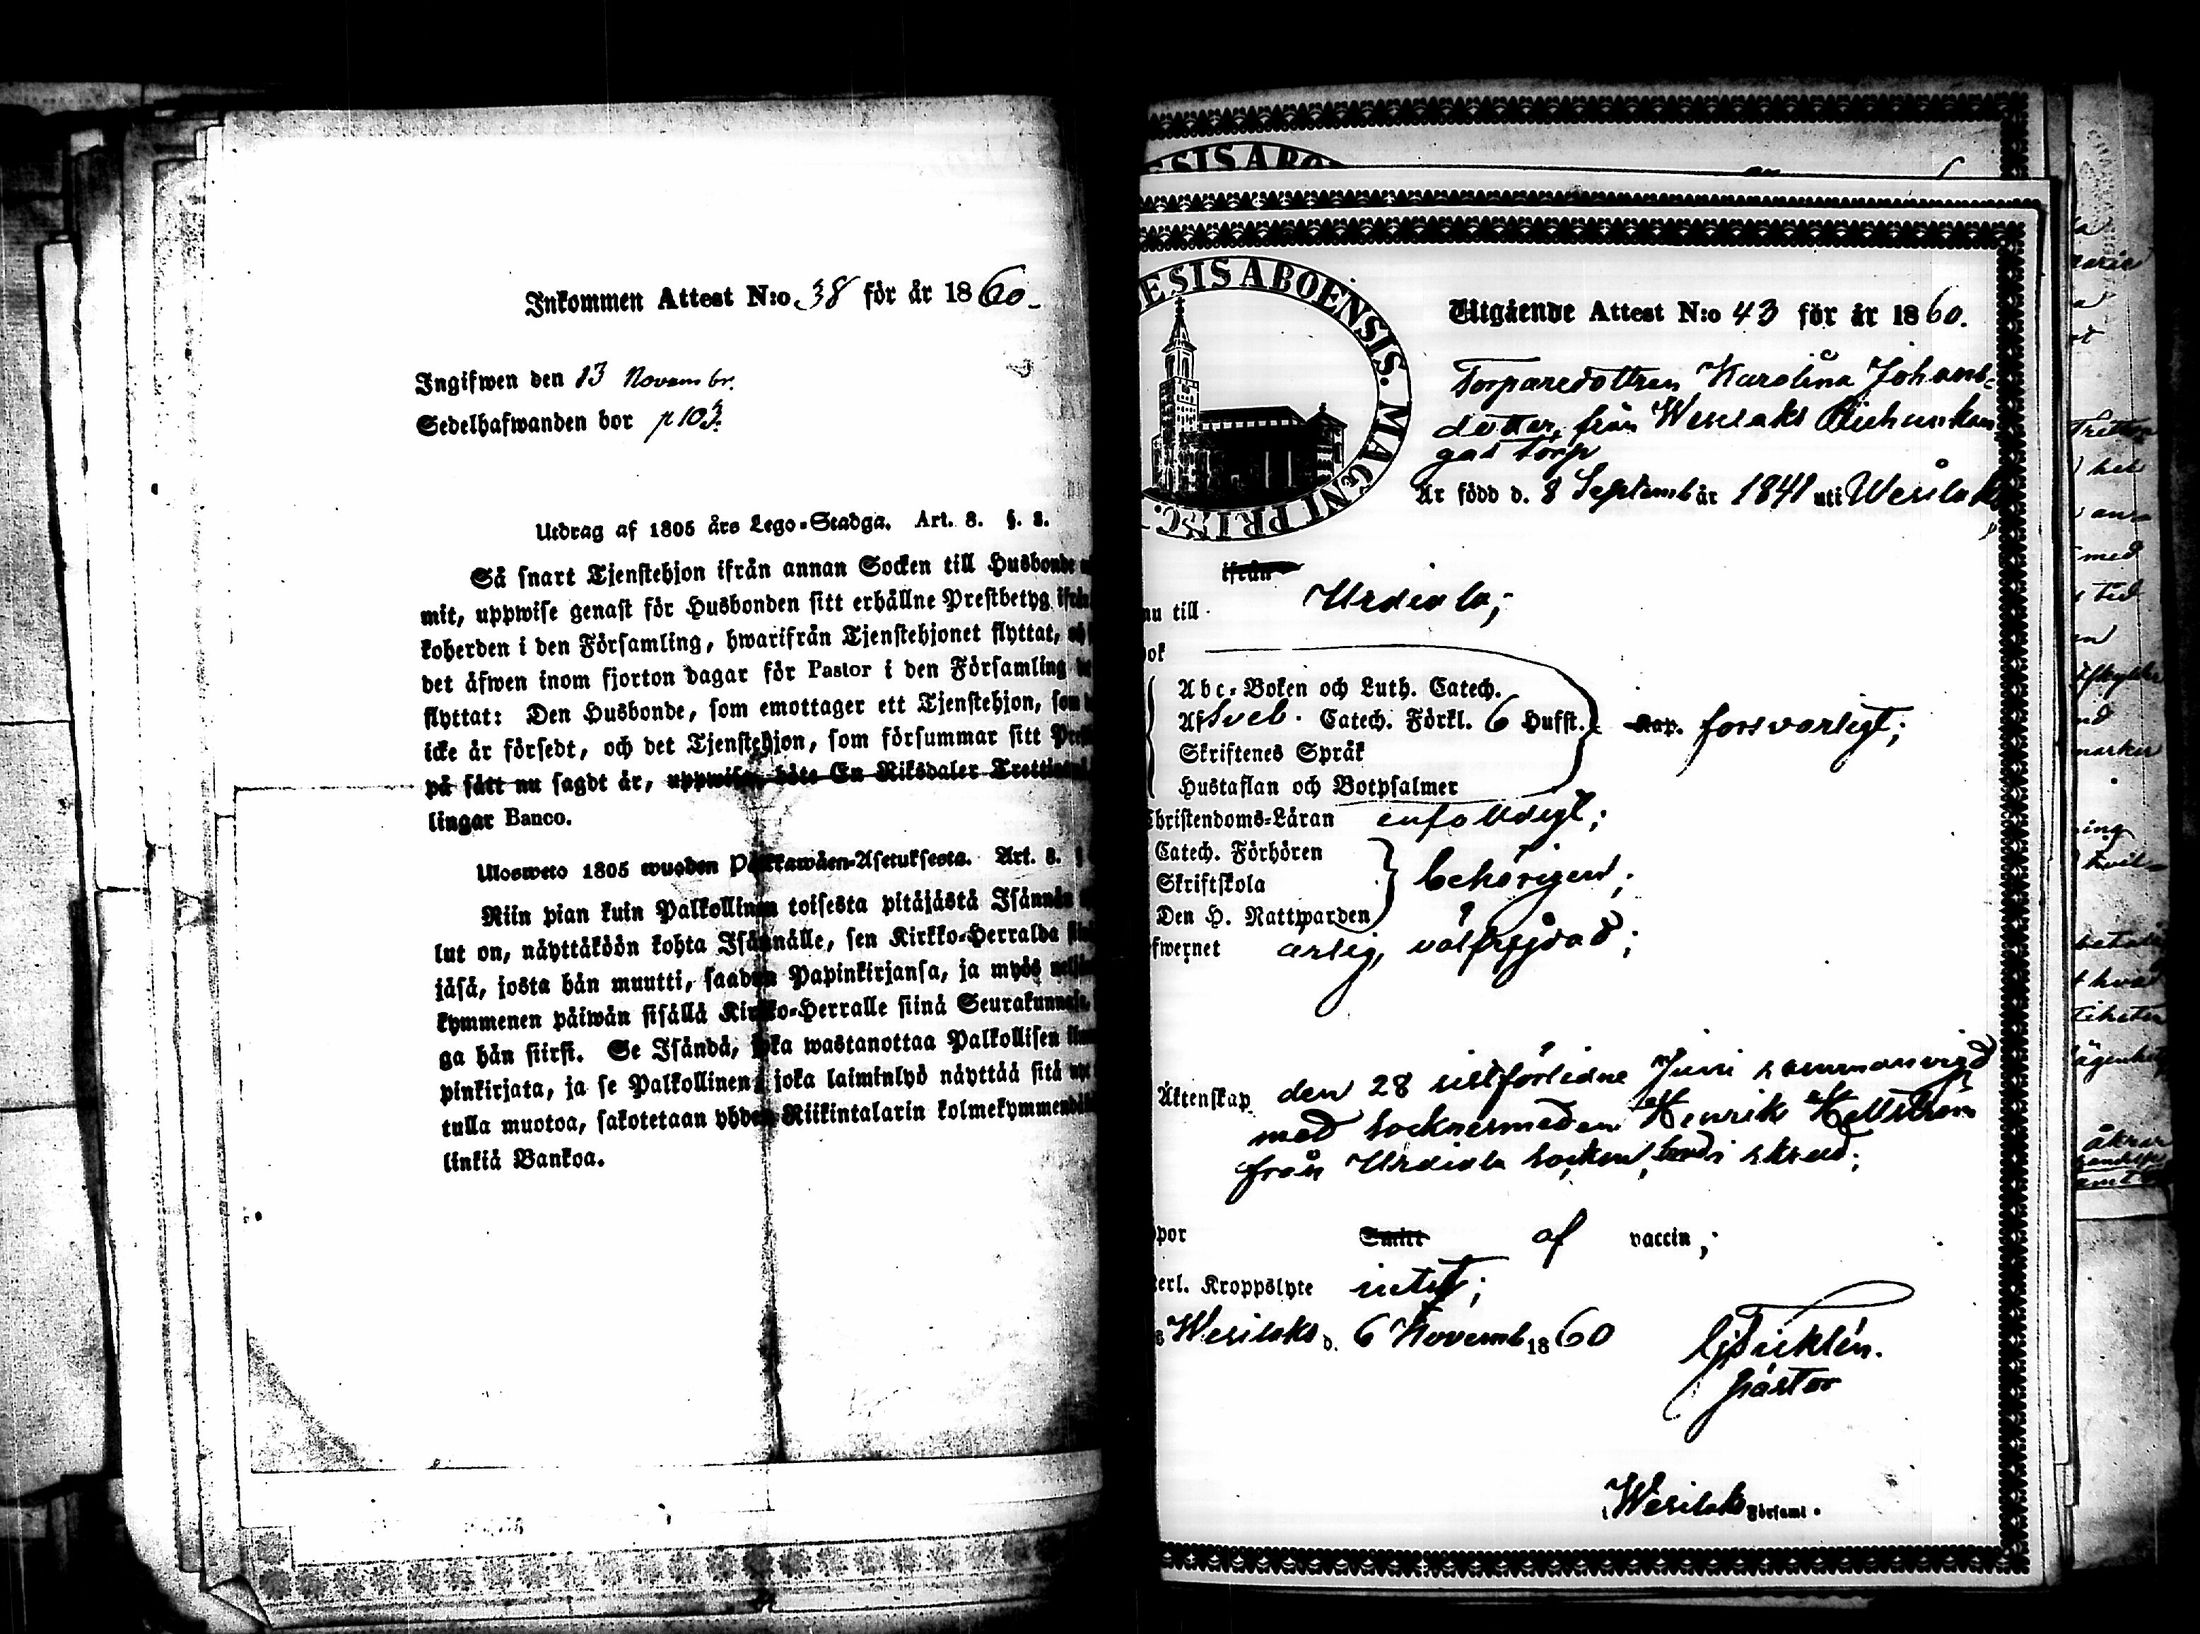 Inkommen Attest N:o 38 för år 1860.
Ingifwen den 13 Novembr.
Sedelhafwanden bor p 103.
Utdrag af 1805 års Lego-Stadga. Art. 8. §. 2.
Så snart Tjenstehjon ifrån annan Socken till Husbonde
mit, uppwise genast för Husbonden sitt erhållne Prestbetyg ifrån
koherden i den Församling, hwarifrån Tjenstehjonet flyttat,
det äfwen inom fjorton dagar för Pastor i den Församling
flyttat: Den Husbonde, som emottager ett Tjenstehjon, som
icke är försedt, och det Tjenstehjon, som försummar sitt
på sätt nu sagdt är, uppwisa, böte En Riksdaler
lingar Banco.
Ulosweto 1805 wuoden Palkawäen-Asetuksesta. Art. 8. §
Niin pian kuin Palkollinen toisesta pitäjästä Isännän
lut on, näyttäköön kohta Isännälle, sen Kirkko-Herralda
jäsä, josta hän muutti, saadun Papinkirjansa, ja myös
kymmenen päiwän sisällä Kirkko-Herralle siinä Seurakunnasa,
ga hän siirsi. Se Isändä, joka wastanottaa Palkollisen
pinkirjata, ja se Palkollinen, joka laiminlyö näyttää sitä
tulla muotoa, sakotetaan yhden Riikintalarin
linkiä Bankoa.
ESIS ABO
ESIS ABOENSIS. MAGNI PRINC.
Utgående Attest N:o 43 för år 1860.
Torparedottren Karolina Johans-
dotter, från Wesilaks
gas torp
Är född d. 8 Septemb år 1841 uti Wesilak
ifrån
nu till Urdiala;
bok
Abc-Boken och Luth. Catech.
Af Sveb. Catech. Förkl. 6 Hufst. Kap. forsvarligt;
Skriftenes Språk
Hustaflan och Botpsalmer
Christendoms-Läran enfaldigt;
Catech. Förhören
Skriftskola behörigen;
Den H. Nattwarden
fwernet ärlig, välfrejdad;
Äktenskap den 28 sistförlidne Juni sammanvigd
med socknesmeden Henrik Hellström
från Urdiala socken, skrud;
ppor Smitt af vaccin;
erl. Kroppslyte intet;
Wesilaks d. 6 Novemb 1860
Pastor
i Wesilaks Församl.